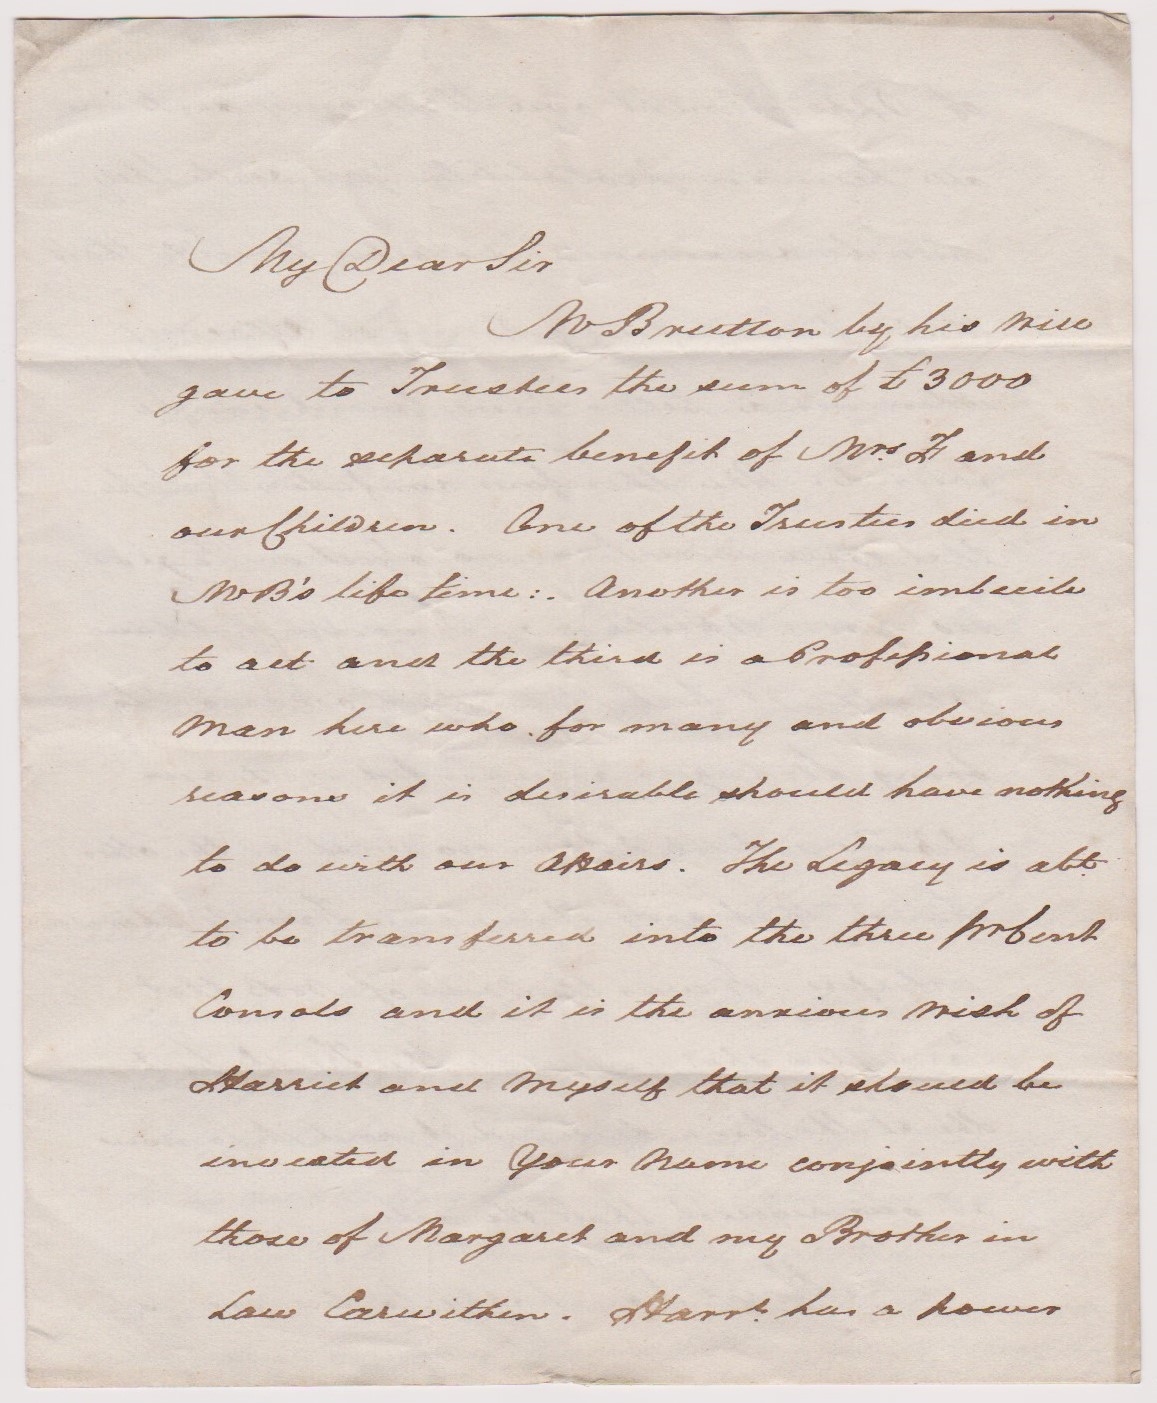 My Dear Sir
Mr Brutton by his will
gave to Trustees the sum of £3000
for the separate benefit of Mrs. F and
our Children. One of the Trustees died in
Mr B's life time:. Another is too imbecile
to act and the third is a Professional
Man here who for many and obvious
reasons it is desirable should have nothing
to do with our Affairs. The Legacy is abt.
to be transferred into the three pr Cent
Consols and it is the anxious wish of
Harriet and Myself that it should be
invested in Your Name conjointly with
those of Margaret and my Brother in
Law Carwithen. Harrt. has a power